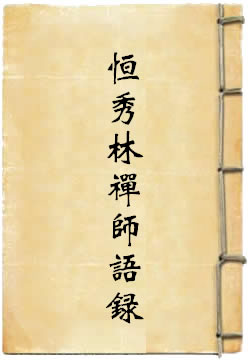 恒秀林禪師語録